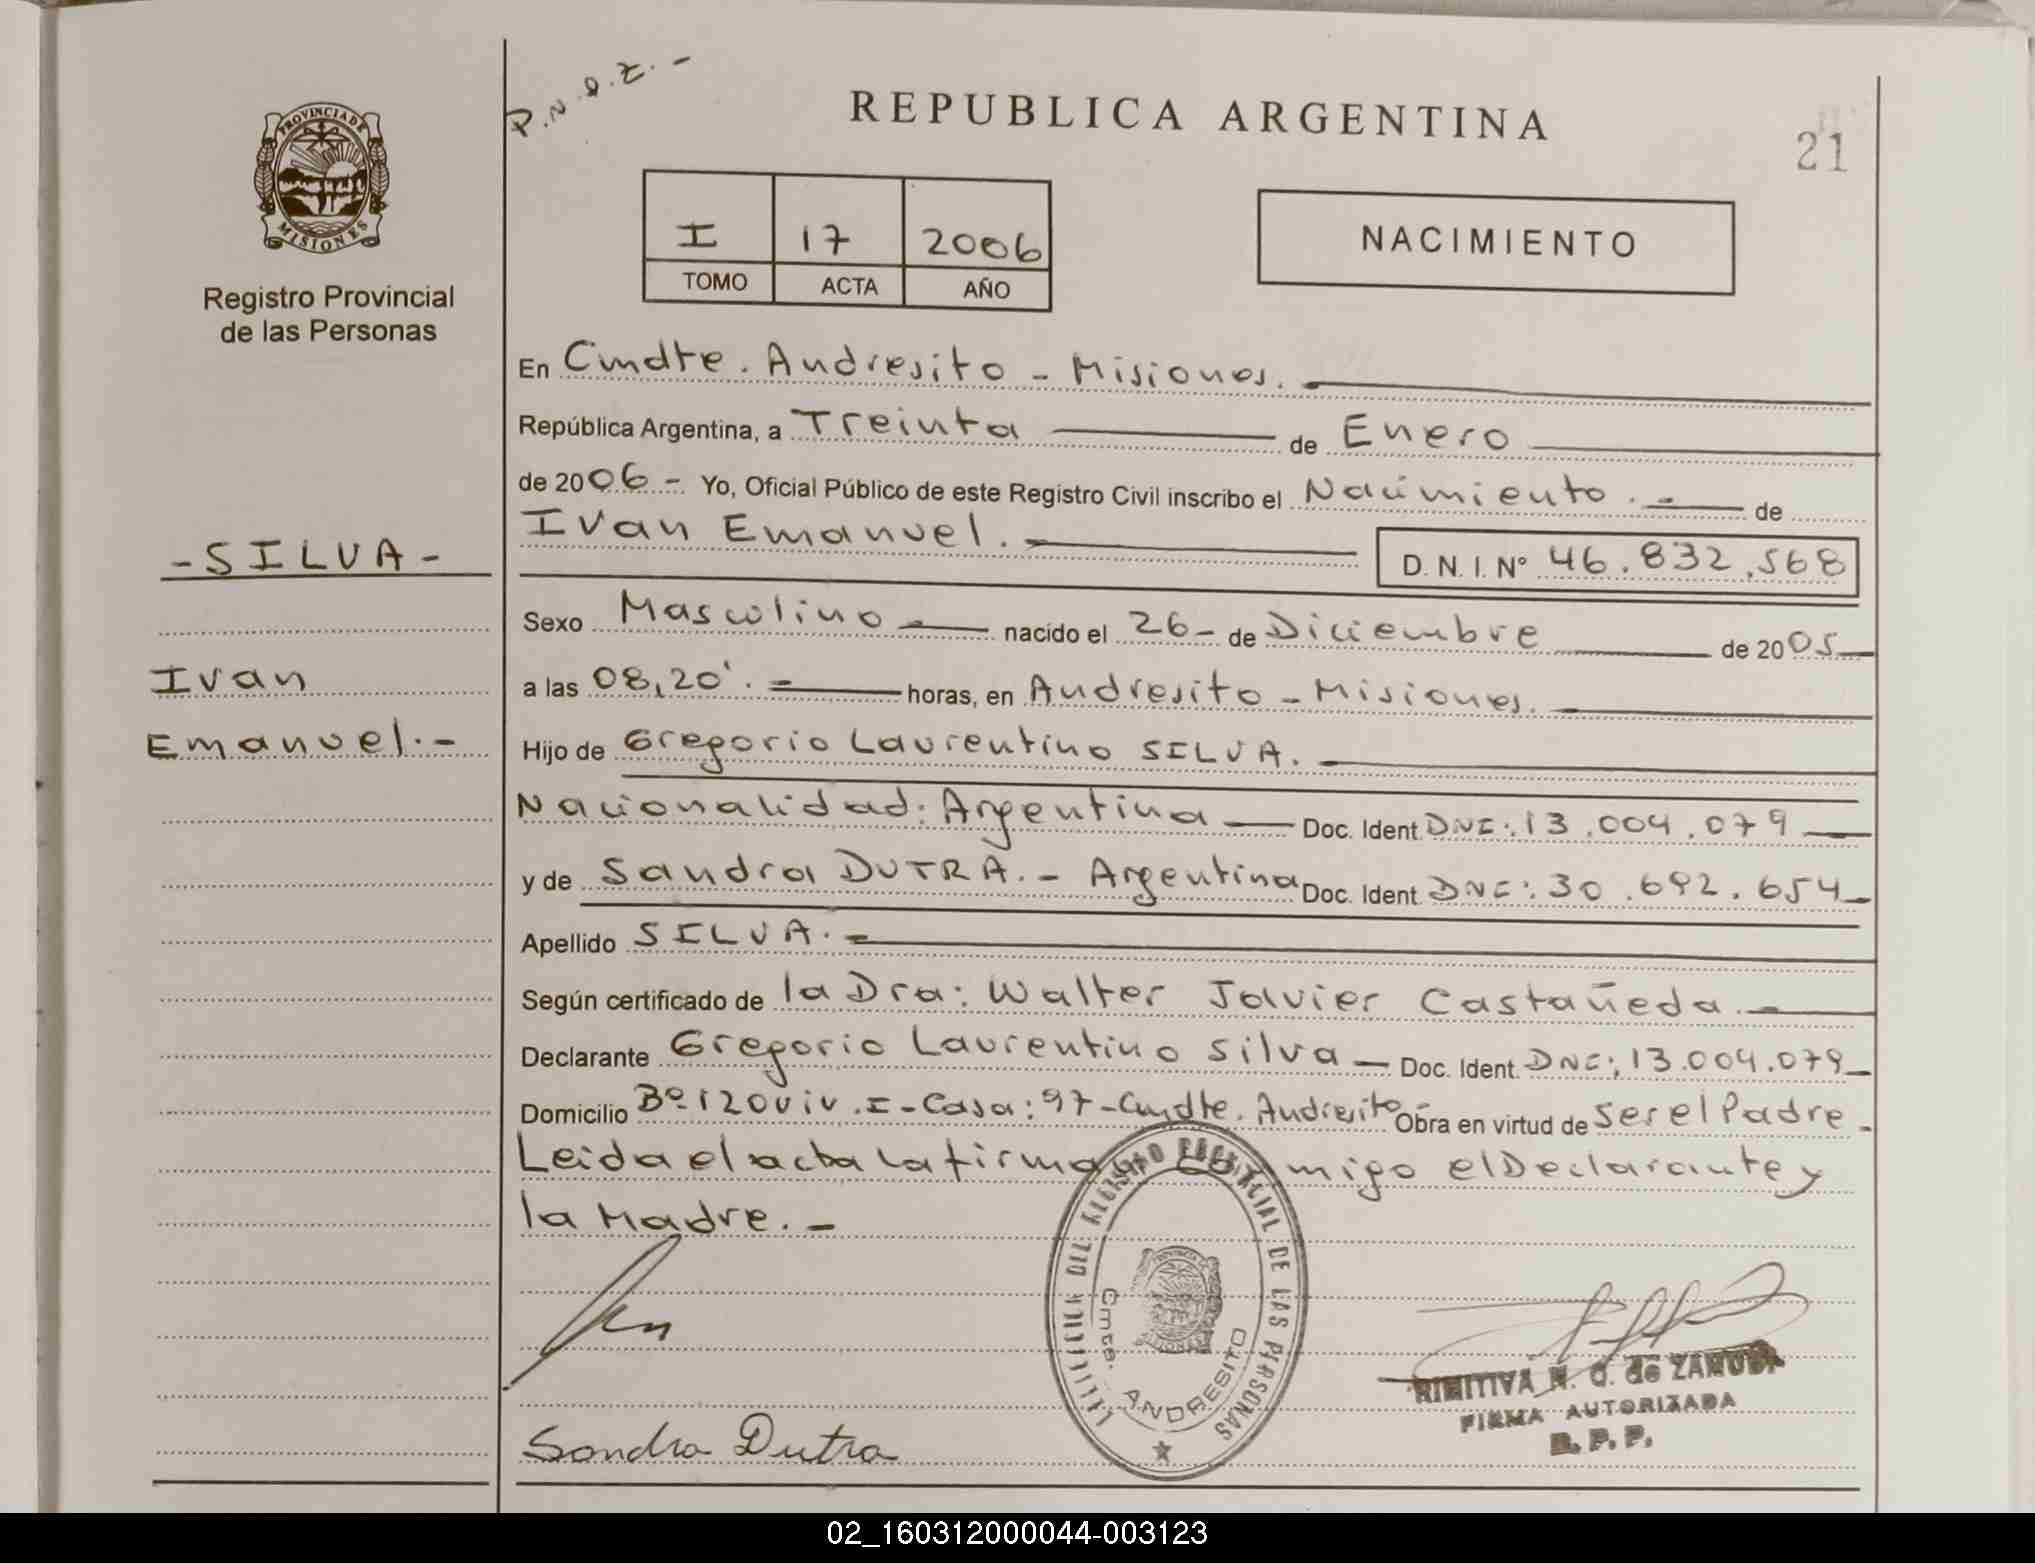 P.N.Q.Z.-
REPUBLICA ARGENTINA
21
PROVINCIA DE
MISIONES
Registro Provincial
de las Personas
I 17 2006
TOMO ACTA AÑO
NACIMIENTO
En Cmdte. Andresito - Misiones.
República Argentina, a Treinta de Enero
de 2006- Yo, Oficial Público de este Registro Civil inscribo el Nacimiento.- de
Ivan Emanuel.-
D. N. I. Nº 46.832.568
- SILVA -
Ivan
Emanuel.-
Sexo Masculino- nacido el 26- de Diciembre de 2005
a las 08,20'.- horas, en Andresito - Misiones.
Hijo de Gregorio Laurentino SILVA.
Nacionalidad: Argentina Doc. Ident. DNI: 13.004.079
y de Sandra DUTRA.- Argentina Doc. Ident. DNI: 30.692.654
Apellido SILVA.-
Según certificado de la Dra: Walter Javier Castañeda.-
Declarante Gregorio Laurentino Silva - Doc. Ident. DNI: 13.004.079
Domicilio Bº 120 viv. I - Casa: 97 - Cmdte. Andresito Obra en virtud de Ser el Padre-
Leida el acta la firman conmigo el Declarante y
la Madre.-
REGISTRO PROVINCIAL DE LAS PERSONAS
Cmte. ANDRESITO
Sandra Dutra
FIRMA AUTORIZADA
R. P. P.
02_160312000044-003123